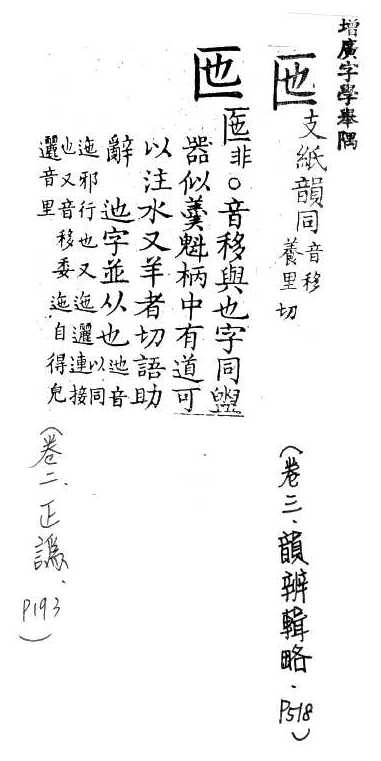 增廣字學舉隅
匜 支紙韻同 音移 養里切
(卷三.韻辨輯略.P518)
匜 匜非○音移與也字同盥
器似羹魁柄中有道可
以注水又羊者切語助
辭 迆字並从也 迆音
迤邪行也又迤邐連接
也又音移委迤自得皃
邐音里
(卷二.正譌.P193)